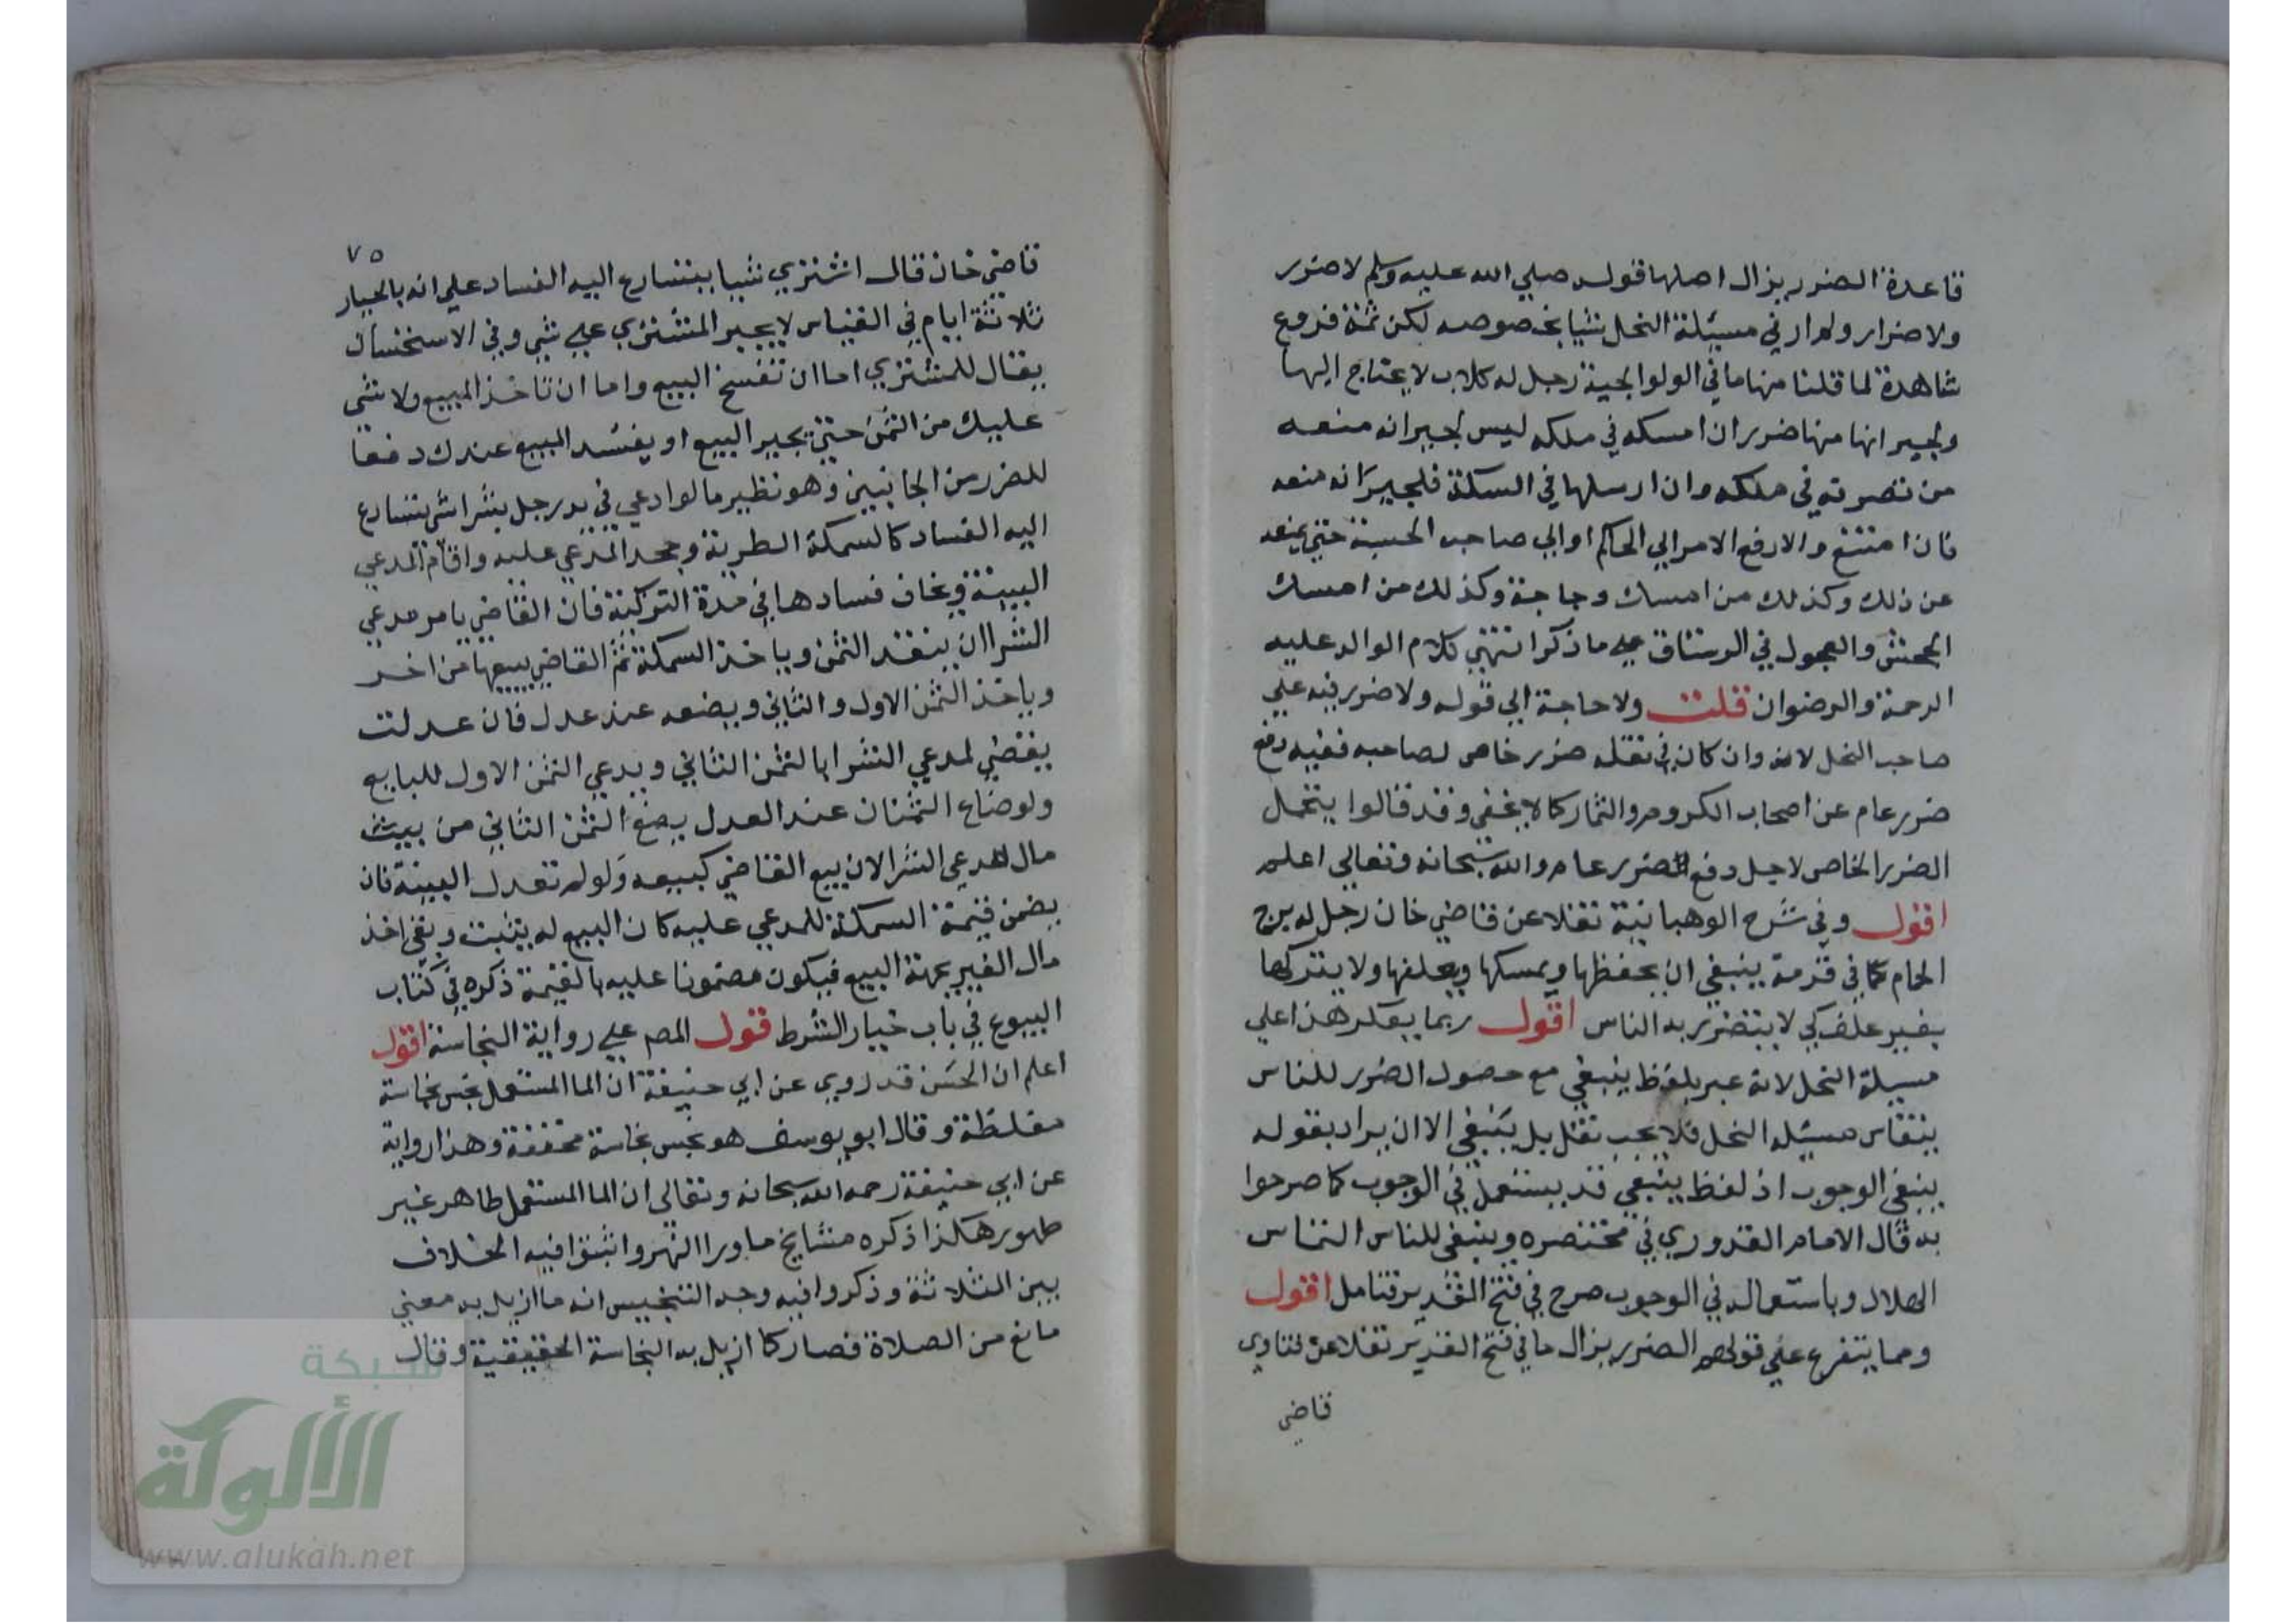 قاعدة الضرر يزال اصلها قوله صلي الله عليه وسلم لا ضرر
ولا ضرار ولم ار في مسئلة النحل شيا بخصوصه لكن ثمة فروع
شاهدة لما قلنا منها ما في الولوالجية رجل له كلاب لا يحتاج اليها
ولجيرانها منها ضرر ان امسكه في ملكه ليس لجيرانه منعه
من تصرفه في ملكه وان ارسلها في السكة فلجيرانه منعه
فان امتنع والا رفع الامر الي الحاكم او الي صاحب الحسبة حتي يمنعه
عن ذلك وكذلك من امسك دجاجة وكذلك من امسك
الجحش والعجول في الرستاق علي ما ذكر انتهي كلام الوالد عليه
الرحمة والرضوان قلت ولا حاجة الي قوله ولا ضرر فيه علي
صاحب النحل لانه وان كان في نقله ضرر خاص لصاحبه ففيه دفع
ضرر عام عن اصحاب الكروم والثمار كما لا يخفي وقد قالوا يتحمل
الضرر الخاص لاجل دفع الضرر عام والله سبحانه وتعالي اعلم
اقول وفي شرح الوهبانية نقلا عن قاضي خان رجل له برج
الحمام كما في قرمة ينبغي ان يحفظها ويمسكها ويعلفها ولا يتركها
بغير علف كي لا يتضرر به الناس اقول ربما يعكر هذا علي
مسيلة النحل لانه عبر بلفظ ينبغي مع حصول الضرر للناس
يتقاس مسيله النحل فلا يجب نقل بل ينبغي الا ان يراد بقوله
ينبغي الوجوب اذ لفظ ينبغي قد يستعمل في الوجوب كما صرحوا
به قال الامام القدوري في مختصره وينبغي للناس التماس
الهلال وباستعماله في الوجوب صرح في فتح القدير فتامل اقول
ومما يتفرع علي قولهم الضرر يزال ما في فتح القدير نقلا عن فتاوي
قاضي
٧٥
قاضي خان قال اشتري شيا يتسارع اليه الفساد علي انه بالخيار
ثلاثة ايام في القياس لا يجبر المشتري علي شي وفي الاستحسان
يقال للمشتري اما ان تفسخ البيع واما ان تاخذ المبيع ولا شي
عليك من الثمن حتي يجيز البيع او يفسد المبيع عندك دفعا
للضرر من الجانبين وهو نظير ما لو ادعي في يد رجل بشراشي يتسارع
اليه الفساد كالسمكة الطرية وجحد المدعي عليه واقام المدعي
البينة ويخاف فسادها في مدة التزكية فان القاضي يامر مدعي
الشرا ان ينقد الثمن وياخذ السمكة ثم القاضي يبيعها من اخر
وياخذ الثمن الاول والثاني ويضعه عند عدل فان عدلت
يقضي لمدعي الشرا بالثمن الثاني ويدعي الثمن الاول للبايع
ولو ضاع الثمنان عند العدل يضع الثمن الثاني من بيت
مال لمدعي الشرا لان بيع القاضي كبيعه ولو لم تعدل البينة فان
يضمن قيمة السمكة للمدعي عليه كان البيع لم يثبت وبقي اخذ
مال الغير بجهة البيع فيكون مضمونا عليه بالقيمة ذكره في كتاب
البيوع في باب خيار الشرط قول المص علي رواية النجاسة اقول
اعلم ان الحسن قد روي عن ابي حنيفة ان الما المستعمل نجس نجاسة
مغلظة وقال ابو يوسف هو نجس نجاسة مخففة وهذا رواية
عن ابي حنيفة رحمه الله سبحانه وتعالي ان الما المستعمل طاهر غير
طهور هكذا ذكره مشايخ ماورا النهر واثبتوا فيه الخلاف
بين الثلاثة وذكروا فيه وجه التنجيس انه ما ازيل به معني
مانع من الصلاة فصار كما ازيل به النجاسة الحقيقية وقال
شبكة
الألوكة
www.alukah.net